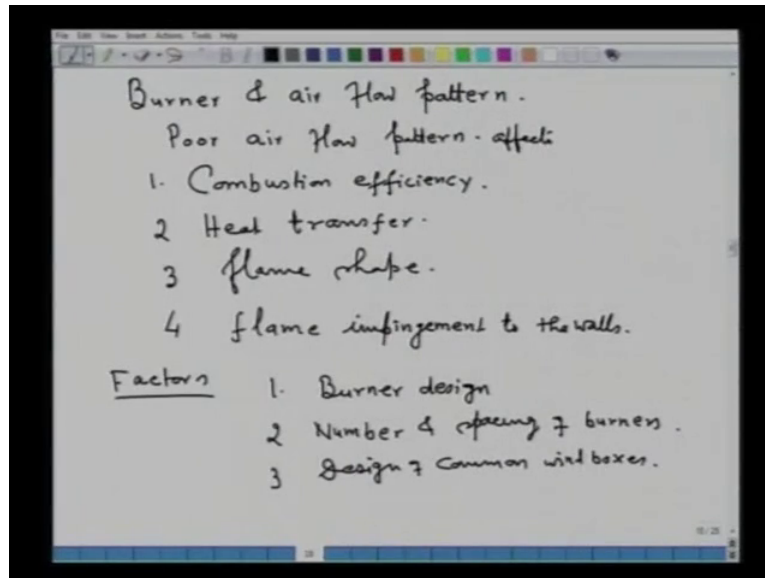 File Edit View Insert Actions Tools Help
Burner & air flow pattern.
Poor air flow pattern. affects
1. Combustion efficiency.
2 Heat transfer.
3 flame shape.
4 flame impingement to the walls.
Factors
1. Burner design
2 Number & spacing of burners.
3 Design of common wind boxes.